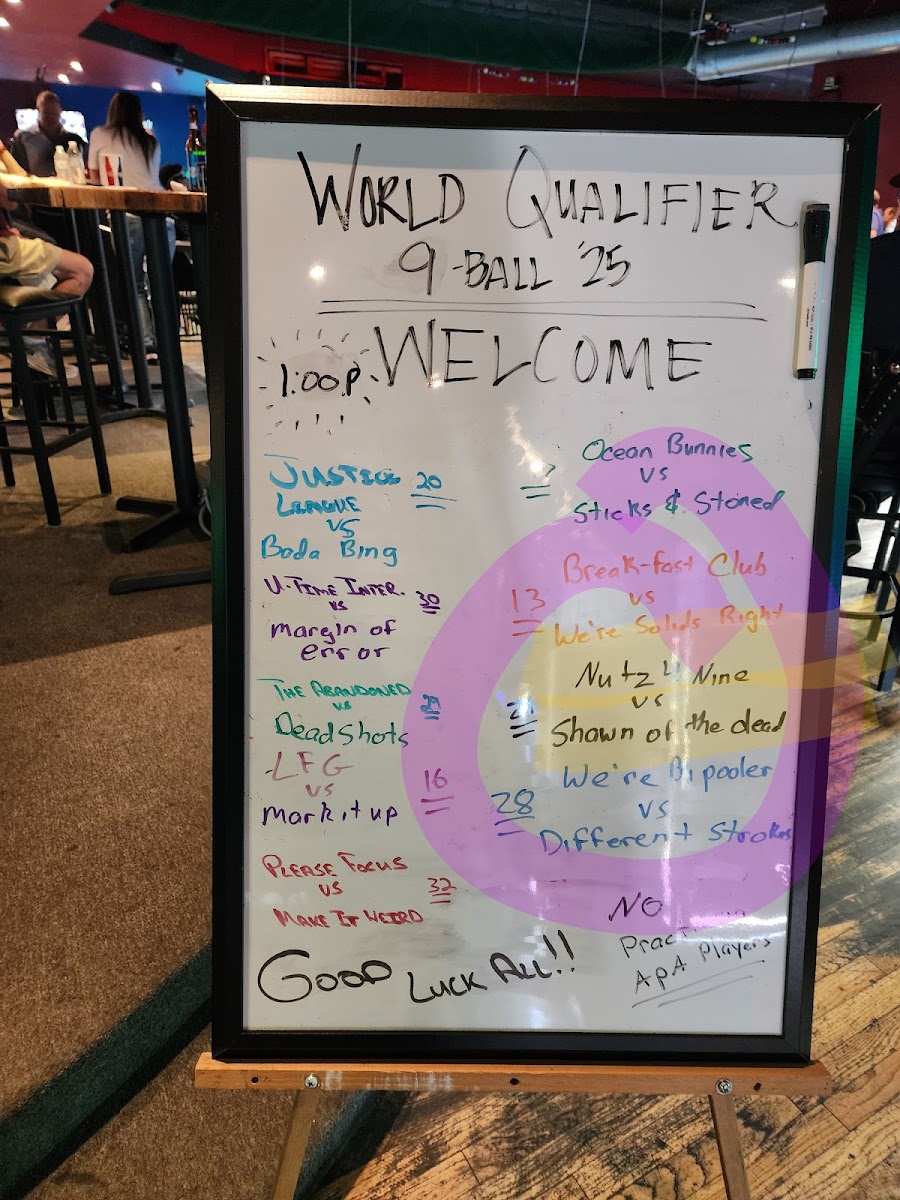 WORLD QUALIFIER
9-BALL '25
1:00p. WELCOME
JUSTICE 20
LEAGUE
VS
Bada Bing
U-TIME INTER. 30
vs
margin of
error
THE ABANDONED
vs
Deadshots
LFG
VS 16
mark it up
PLEASE FOCUS
VS 32
MAKE IT WEIRD
7 Ocean Bunnies
vs
Sticks & Stoned
Break-fast Club
13 vs
We're Solids Right
Nutz 4 Nine
vs
Shawn of the dead
We're Bipooler
28 VS
Different Strokes
GOOD LUCK ALL!!
NO
APA Players